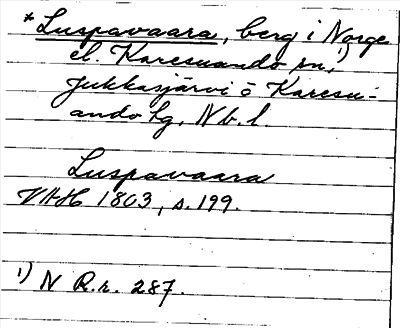 * Luspavaara, berg i Norge
el. Karesuando sn, 1)
Jukkasjärvi o Karesu-
ando lg, Nb. l.
Luspavaara
VAH 1803, s. 199.
1) N R.r. 287.